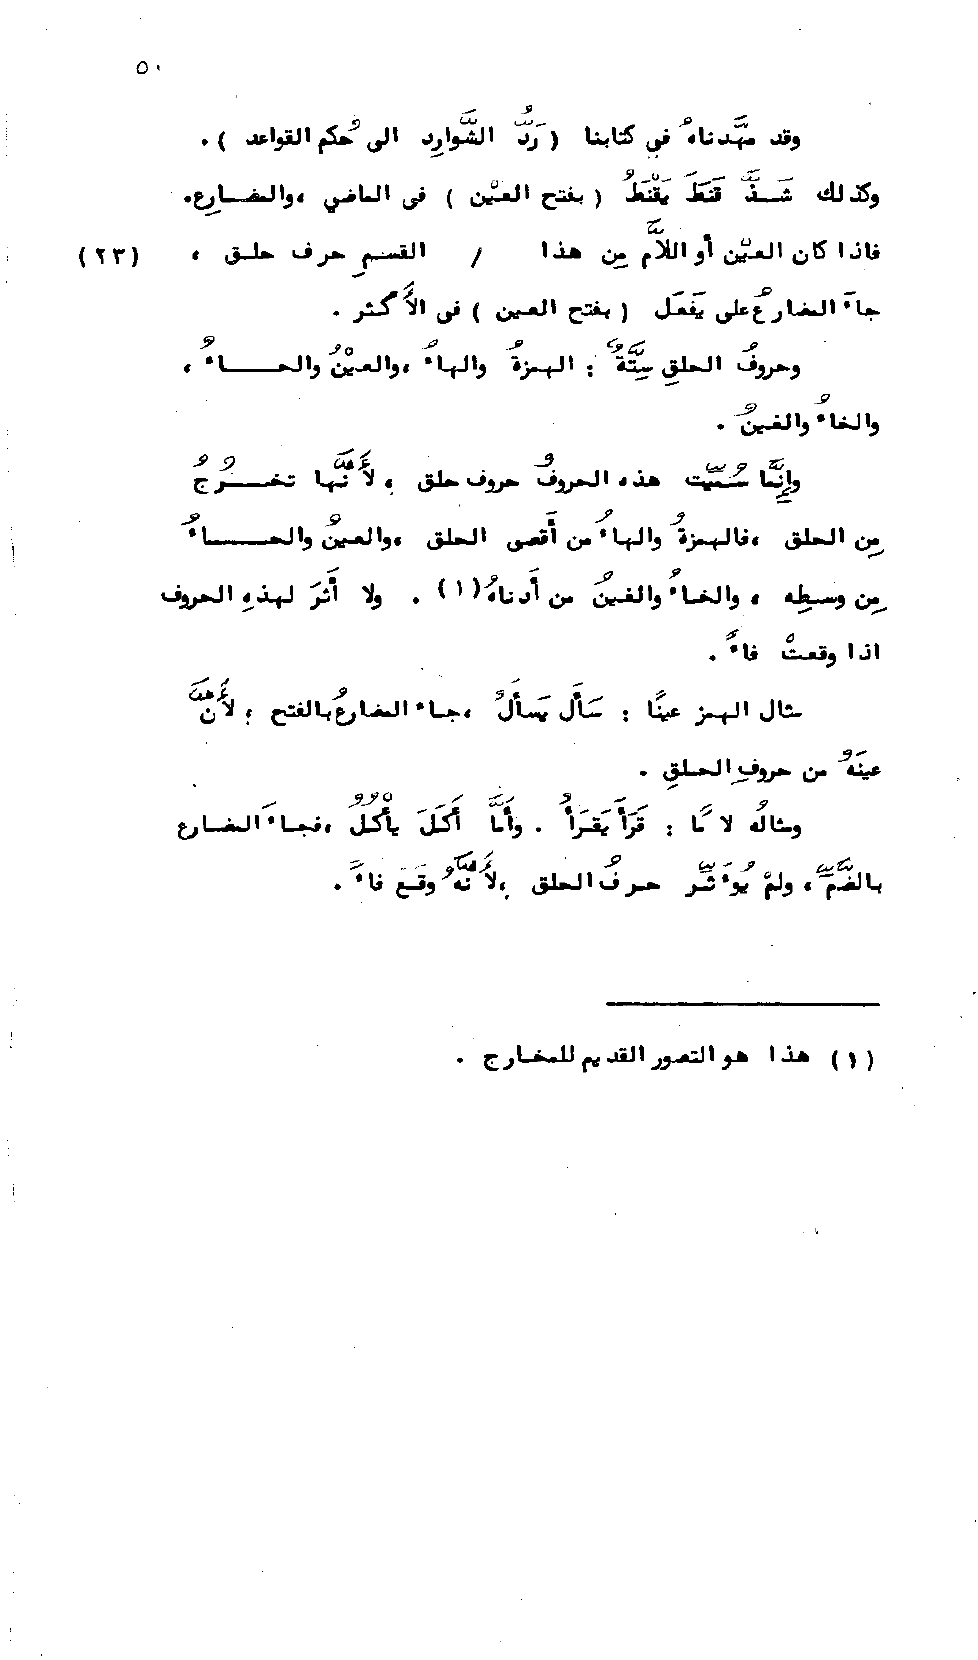 ٥٠
وقد مهَّدناهُ في كتابنا ( رَدُّ الشَّوارِد الى حُكم القواعد ) .
وكذلك شَــذَّ قنَطَ يقْنَطُ ( بفتح العيْن ) فى الماضي ،والمضـارِع.
فاذا كان العيْن أو اللاَّم مِن هذا / القسمِ حرف حلـق ، (٢٣)
جاءَ المضارعُ على يَفعَل ( بفتح العين ) فى الأَكثر .
وحروفُ الحلقِ سِتَّةٌ : الهمزةُ والهاءُ ،والعيْنُ والحـــاءُ ،
والخاءُ والغينُ .
وإِنَّما سُـمِّيت هذه الحروفُ حروف حلق ؛ لأَنَّها تخــرُجُ
مِن الحلق ،فالهمزةُ والهاءُ من أَقصى الحلق ،والعينُ والحـــاءُ
مِن وسـطِه ، والخـاءُ والغينُ من أَدناهُ(١) . ولا أَثرَ لهذهِ الحروف
اذا وقعتْ فاءً .
مثال الهمز عينًا : سَأَل يَسأَلُ ،جـاء المضارعُ بالفتح ؛ لأَنَّ
عينَهُ من حروفِ الحـلقِ .
ومثالُه لا مًا : قَرَأَ يَقرَأُ . وأَمَّا أَكَلَ يأْكُلُ ،فجـاءَ المضـارع
بالضَّمِّ ، ولمْ يُوءَثِّـر حـرفُ الحلق ؛لأَنَّهُ وقَـعَ فاءً .
(١) هذا هو التصور القديم للمخـارج .